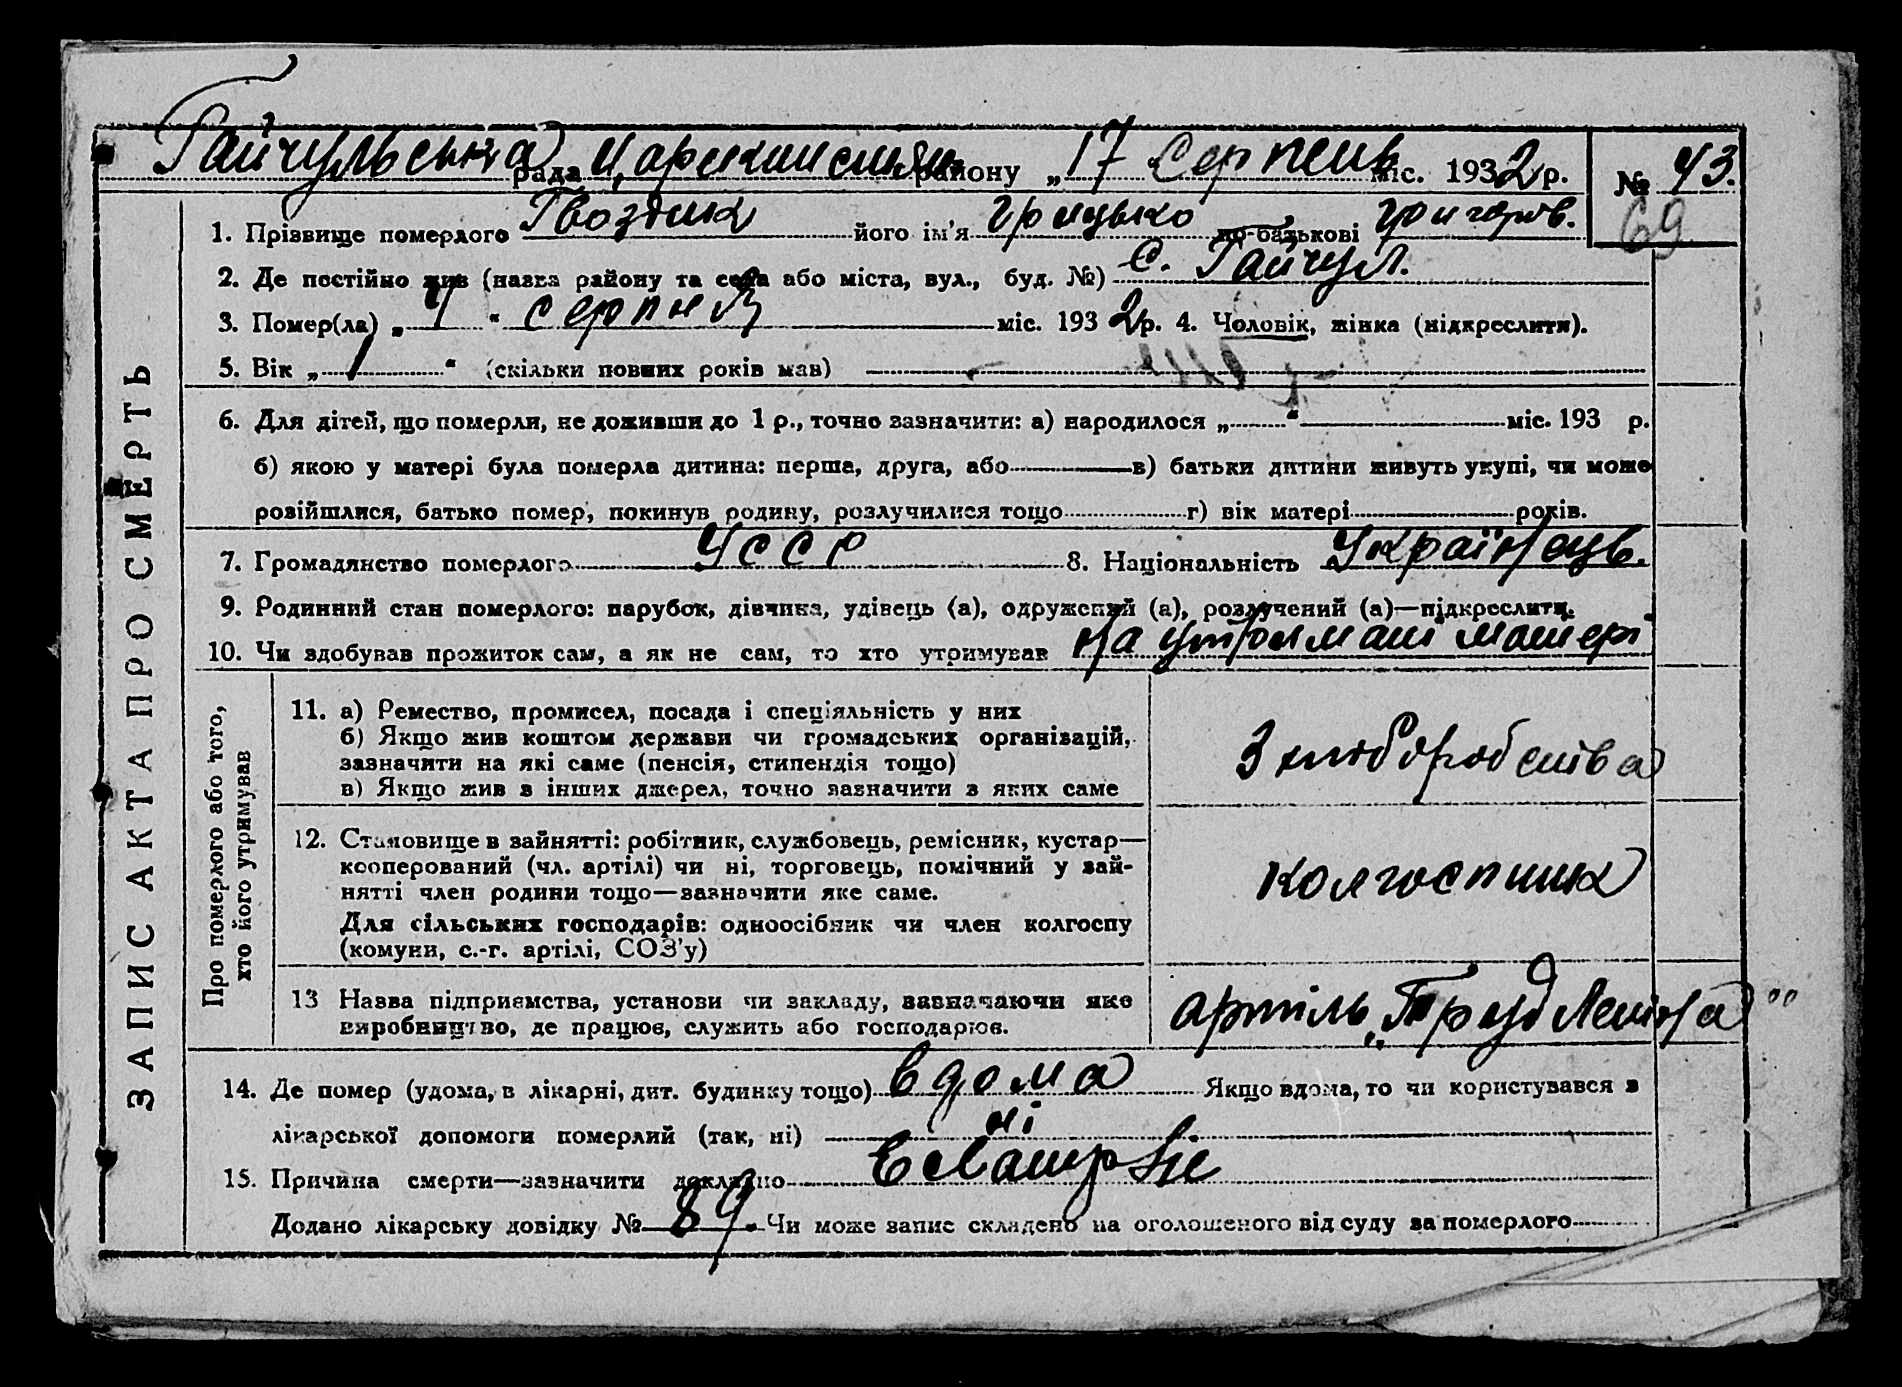 Гайчульська рада Царекаистян району „17 Серпень міс. 1932 р. № 43.
69
1. Прізвище померлого Гвоздик його ім'я Грицько по-батькові Григоров.
2. Де постійно жив (назва району та села або міста, вул., буд. №) с. Гайчул.
3. Помер(ла) „ 4 " серпня міс. 1932 р. 4. Чоловік, жінка (підкреслити).
5. Вік „ 1 " (скільки повних років мав)
6. Для дітей, що померли, не доживши до 1 р., точно зазначити: а) народилося „ " міс. 193 р.
б) якою у матері була померла дитина: перша, друга, або в) батьки дитини живуть укупі, чи може
розійшлися, батько помер, покинув родину, розлучилися тощо г) вік матері років.
7. Громадянство померлого УССР 8. Національність Українець.
9. Родинний стан померлого: парубок, дівчина, удівець (а), одружений (а), розлучений (а)—підкреслити.
10. Чи здобував прожиток сам, а як не сам, то хто утримував На утримані матері
ЗАПИС АКТА ПРО СМЕРТЬ
Про померлого або того,
хто його утримував
11. а) Ремество, промисел, посада і спеціяльність у них
б) Якщо жив коштом держави чи громадських організацій,
зазначити на які саме (пенсія, стипендія тощо)
в) Якщо жив з інших джерел, точно зазначити з яких саме
З хліборобства
12. Становище в зайнятті: робітник, службовець, ремісник, кустар—
кооперований (чл. артілі) чи ні, торговець, помічний у зай-
нятті член родини тощо—зазначити яке саме.
Для сільських господарів: одноосібник чи член колгоспу
(комуни, с.-г. артілі, СОЗ'у)
колгоспник
13 Назва підприємства, установи чи закладу, зазначаючи яке
виробництво, де працює, служить або господарює.
артіль „Труд Леніна"
14. Де помер (удома, в лікарні, дит. будинку тощо) вдома Якщо вдома, то чи користувався з
лікарської допомоги померлий (так, ні) ні
15. Причина смерти—зазначити докладно
Додано лікарську довідку № 89. Чи може запис складено на оголошеного від суду за померлого